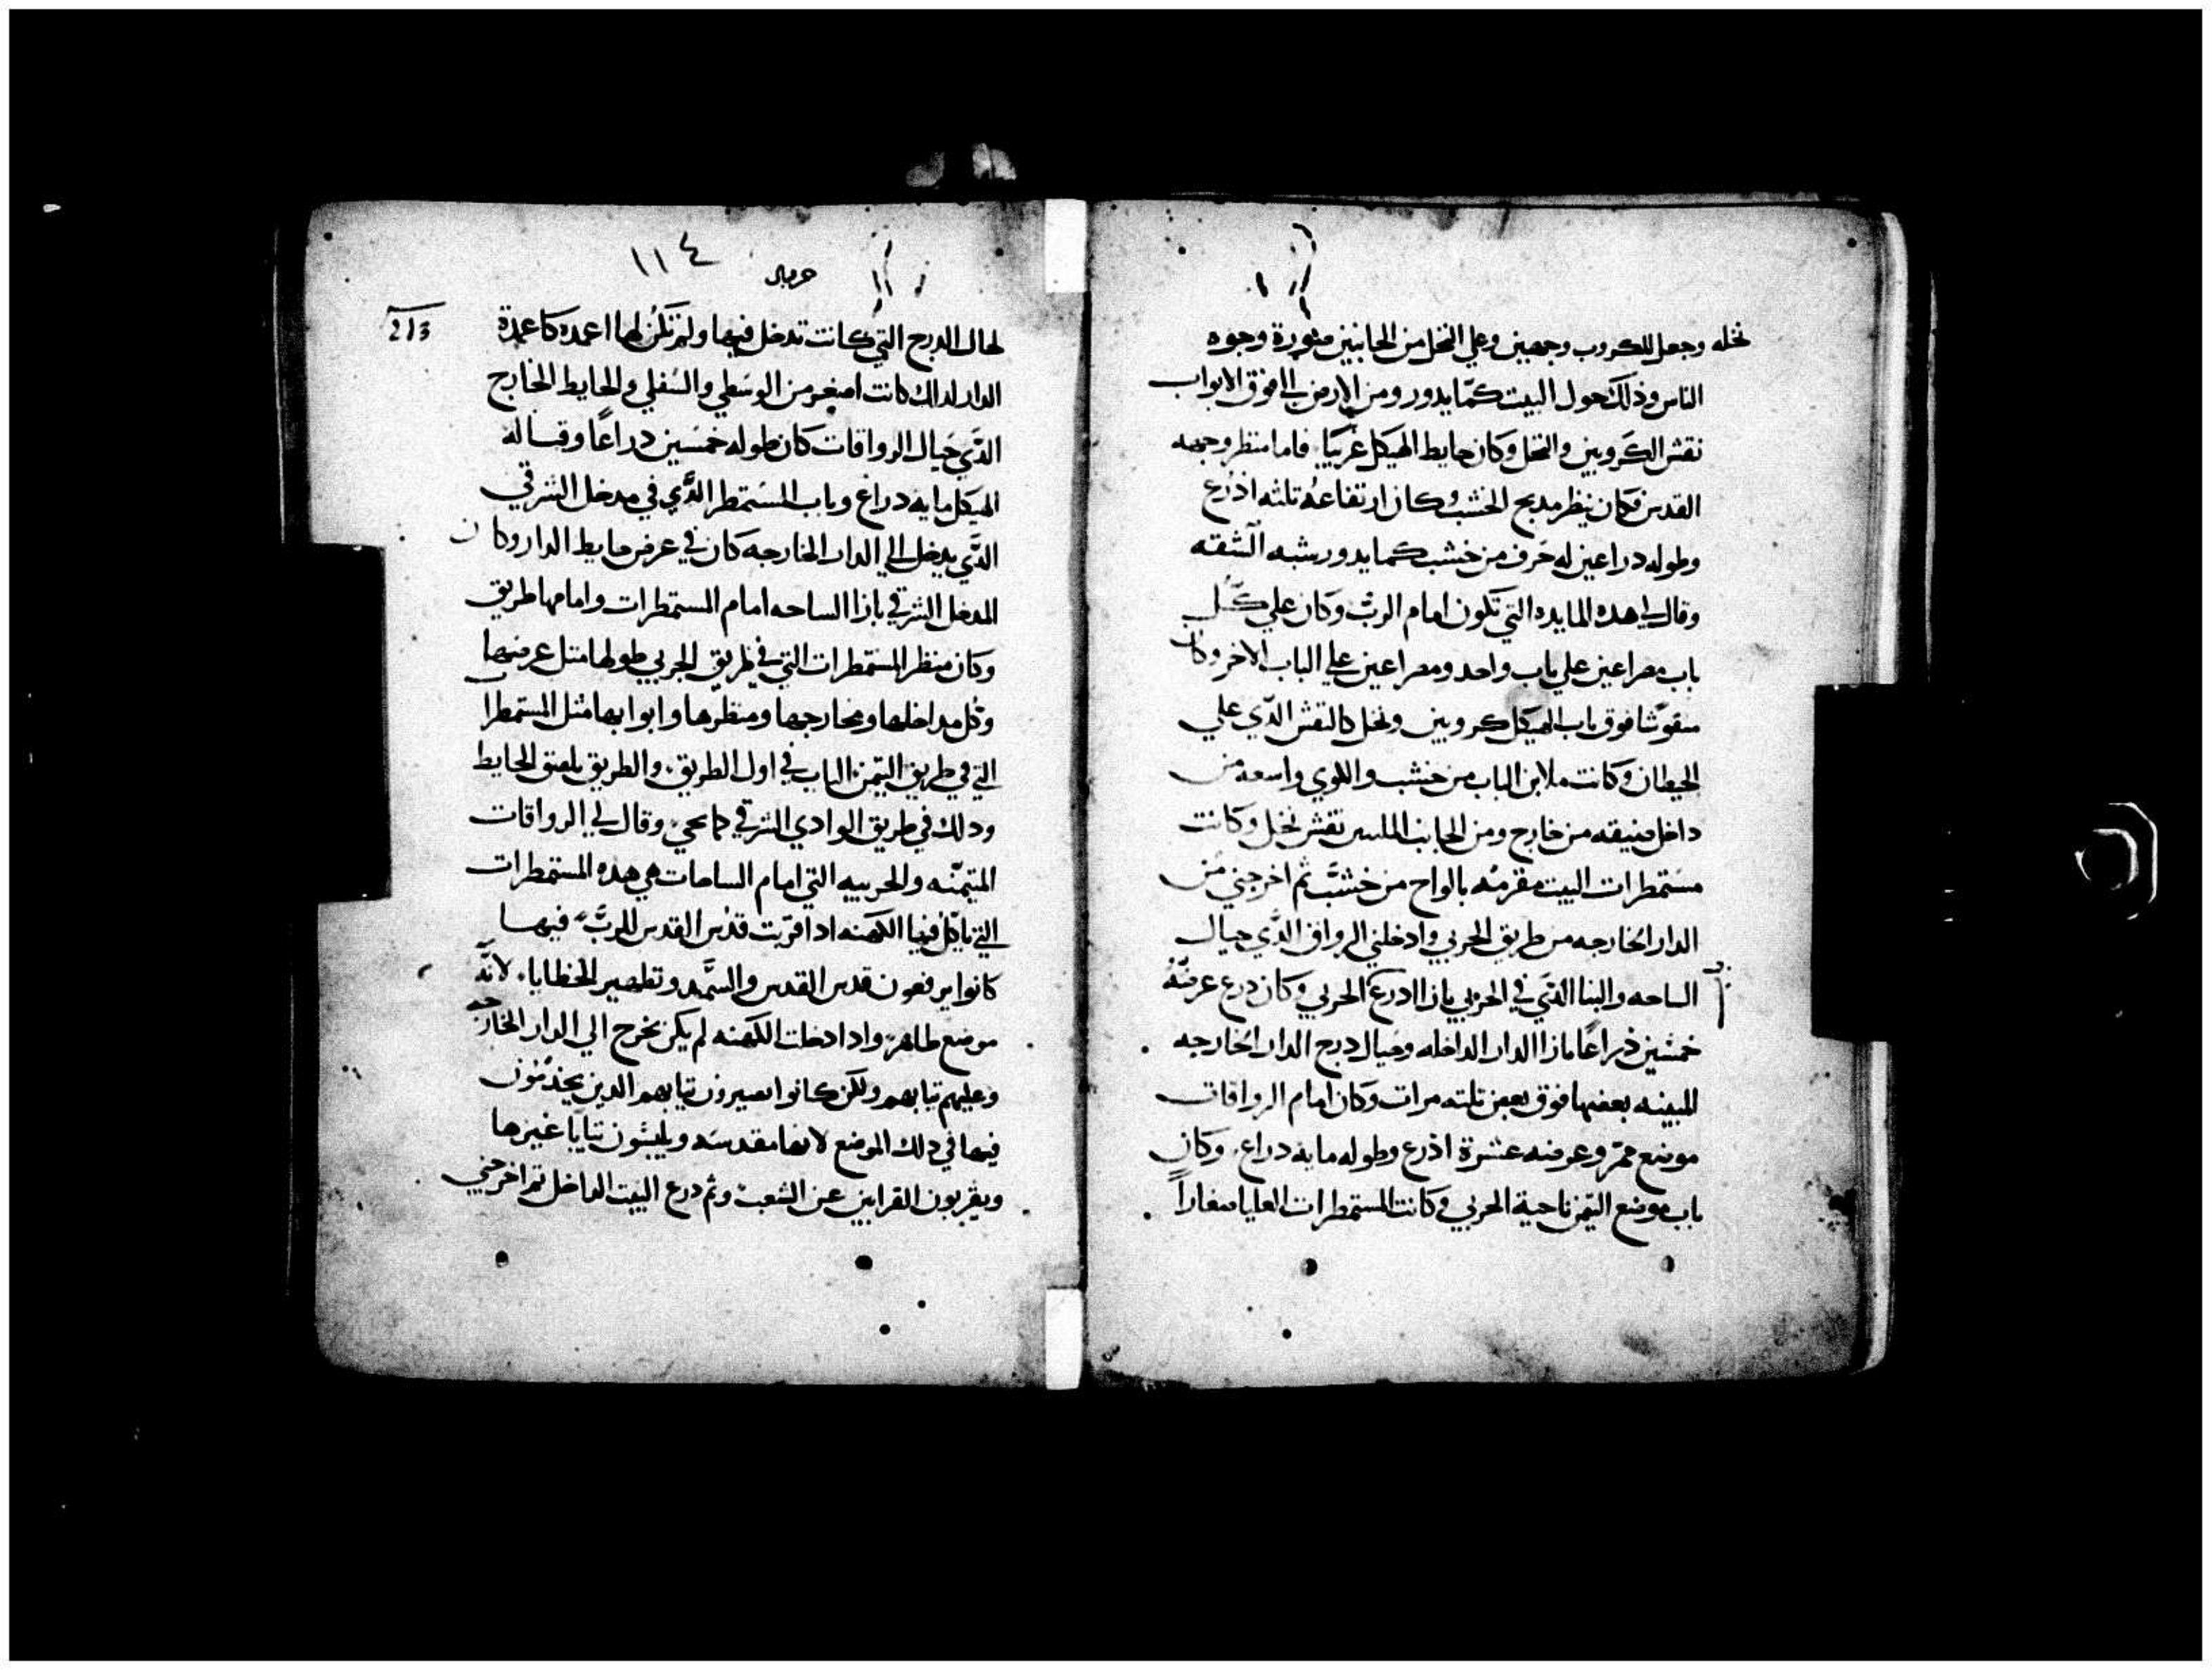 نخله وجعل للكروب وجهين وعلي النخل من الجانبين مصورة وجوه
الناس وذلك حول البيت كمّا يدور ومن الارض الي فوق الابواب
نقش الكروبين والنخل وكان حايط الهيكل غربيًا. فاما منظر وجهه
القدس فكان ينظر مدبح الخشب وكان ارتفاعه تلثه اذرع
وطوله دراعين له حَرف من خشب كما يدور بشبه الشقه
وقال لي هده المايده التي تكون امام الربّ وكان علي كل
باب مصراعين علي باب واحد ومصراعين علي الباب الاخر وكان
منقوشا فوق باب الهيكل كروبين ونخل كالنقش الدّي علي
الحيطان وكانت ملابن الباب من خشب واللوي واسعه من
داخل ضيقه من خارج ومن الجانب نقش نخل وكانت
مستمطرات البيت مقرمده بالواح من خشب ثم اخرجني من
الدار الخارجه من طريق الجربي وادخلني الرواق الدّي حيال
الساحه والبنا الدّي في الجربي بازا ادرع الجربي وكان درع عرضه
خمسين ذراعًا بازا الدار الداخله وحيال درج الدار الخارجه
المبينه بعضها فوق بعض تلته مرات وكان امام الرواقات
موضع ممرّ وعرضه عشرة اذرع وطوله مايه دراع. وكان
باب موضع التيمن ناحية الجربي وكانت المستمطرات العليا صغاراً
١١٤
213
لحال الدرج التي كانت تدخل فيها ولم تكن لها اعمده كاعمدة
الدار لدلك كانت اصغر من الوسطي والسفلي والحايط الخارج
الدّي حيال الرواقات كان طوله خمسين دراعًا وقبالة
الهيكل مايه دراع وباب المستمطر الدّي في مدخل الشرقي
الدّي يدخل الي الدار الخارجه كان في عرض حايط الدار وكان
المدخل الشرقي بازا الساحه امام المستمطرات وامامها طريق
وكان منظر المستمطرات التي في طريق الجربي طولها متل عرضها
وكل مداخلها ومخارجها ومنظرها وابوابها متل المستمطرات
التي في طريق التيمن الباب في اول الطريق والطريق يلصق الحايط
ودلك في طريق الوادي الشرقي كما يجي. وقال لي الرواقات
المتيمّنه والجربيه التي امام الساحات هي هده المستمطرات
التي ياكل فيها الكهنه ادا قربت قدس القدس للربّ فيها
كانوا يرفعون قدس القدس والسّمد وتطهير الخطايا. لانه
موضع طاهر وادا دخلت الكهنه لم يكن يخرج الي الدار الخارجه
وعليهم تيابهم ولكن كانوا يصيرون تيابهم الدين يخدمون
فيها في دلك الموضع لانها مقدسه ويلبسون تيابا غيرها
ويقربون القرابين عن الشعب وثم درع البيت الداخل ثم اخرجني